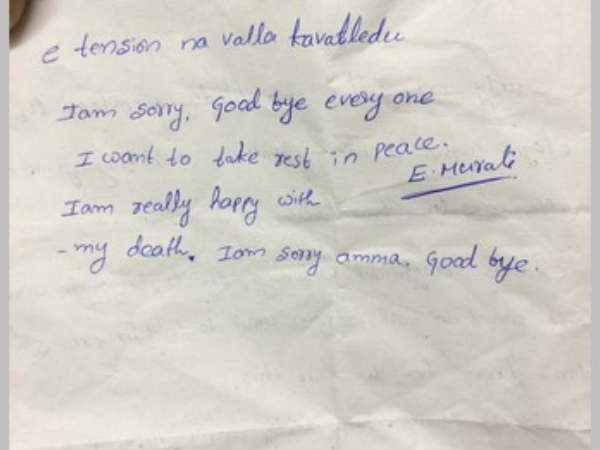 e tension na valla kavatledu
Iam sorry. Good bye every one
I want to take rest in peace.
E. Murali
Iam really happy with
-my death. Iam sorry amma. Good bye.